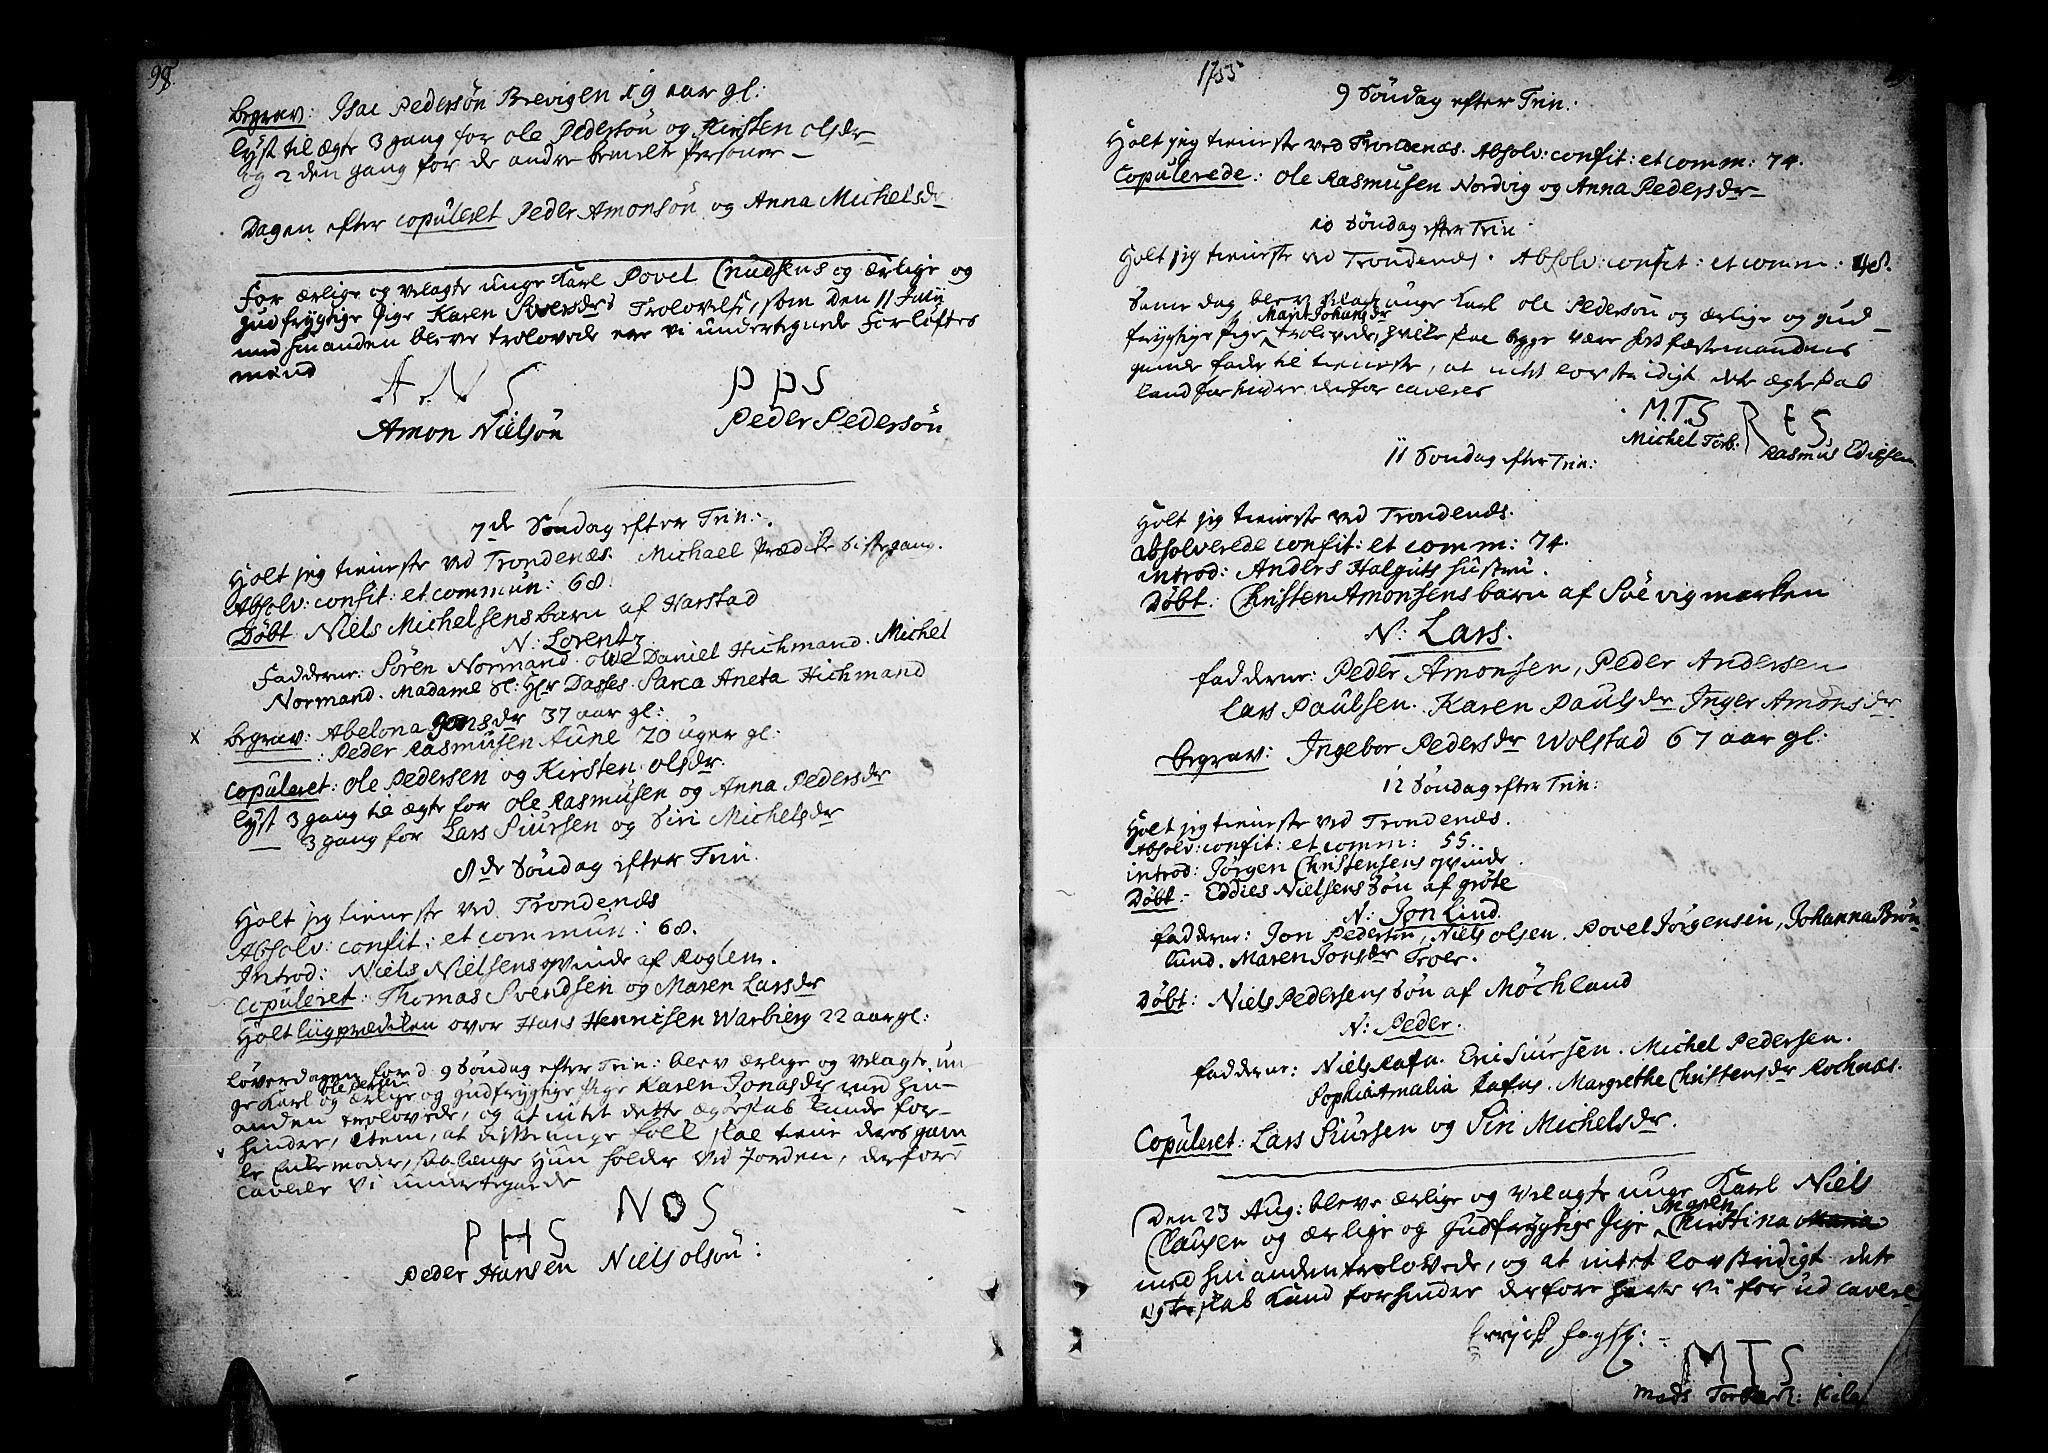 98.
Begrav: Isac Pedersøn Brevigen 19 aar gl:
lyst til ægte 3 gang for ole Pedersøn og Kirsten olsdr
og 2 den gang for de andre bemelte Personer
Dagen efter copuleret Peder Amonsøn og Anna Michelsdr
For ærlige og velagte unge Karl Povel Cnudsens og ærlige og
gudfrygtige Pige Karen Siversdrs Trolovelse, som den 11 July
med hinanden bleve trolovede ere vi undertegnede Forløftes
mænd
A. N S PPS
Amon Nielsøn Peder Pedersøn
7de Søndag efter Trin:
Holt jeg tieneste ved Trondenæs. Michael Prædike sidste gang.
Absolv: confit: et commun: 68.
Døbt: Niels Michelsens barn af Harstad
N: Lorentz
Fadderne: Sören Normand. Daniel Hichmand. Michel
Normand. Madame Sl: Hr Dasses. Sara Aneta Hichmand
x Begrav: Abelona Jonsdr 37 aar gl:
: Peder Rasmusen Aune 20 uger gl:
Copuleret: Ole Pedersen og Kirsten olsdr.
lyst 3 gang til ægte for Ole Rasmusen og Anna Pedersdr
3 gang for Lars Siursen og Siri Michelsdr
8de Søndag efter Trin.
Holt jeg tieneste ved Trondenæs
Absolv: confit: et commun: 68.
Introd: Niels Nielsens qvinde af Roglem.
Copuleret: Thomas Svendsen og Maren Larsdr
Holt liigprædiken over Hans Henricsen Warbierg 22 aar gl:
Løverdagen for d. 9 Søndag efter Trin: blev ærlige og velagte un
ole Persen
ge Karl og ærlige og gudfrygtige Pige Karen Jonasdr med hin-
anden trolovede, og at intet dette ægteskab kunde for-
hindre, item, at disse unge folk skal tiene deres gam
le moder, saa længe hun holder ved Jorden, derfore
cavere vi undertegnede
PHS NOS
Peder Hansen Niels olsøn:
1755
9 Søndag efter Trin:
Holt jeg tieneste ved Trondenæs. Absolv: confit: et comm: 74.
Copulerede: Ole Rasmusen Nordvig og Anna Pedersdr
10 Søndag efter Trin
Holt jeg tieneste ved Trondenæs. Absolv: confit: et comm: 48.
Same dag blev velagte unge Karl ole Pedersøn og ærlige og gud-
Marit Johansdr
frygtige Pige trolovede, hvilke skal begge være hos fæstemandens
gamle fader til tieneste, at intet lovstridigt dette ægteskab
kand forhindre derfor caveres
M.T.S R E S.
Michel Torb. Rasmus Edissen
11 Søndag efter Trin:
Holt jeg tieneste ved Trondenæs.
Absolverede confit: et comm: 74.
introd: Anders Halguts hustru.
Døbt: Christen Amonsens barn af Söevigmarken
N: Lars.
fadderne: Peder Amonsen, Peder Andersen
Lars Paulsen. Karen Paulsdr Inger Amonsdr
Begrav: Ingebor Pedersdr Wolstad 67 aar gl:
12 Søndag efter Trin:
Holt jeg tieneste ved Trondenæs.
Absolv: confit: et comm: 55.
introd: Jørgen Christensens qvinde.
Døbt: Eddies Nielsens Søn af grøte
N: Jon Lind.
fadderne: Jon Pedersøn, Niels olsen. Povel Jørgensen, Johanna Brön
lund. Maren Jonsdr Troer.
Døbt: Niels Pedersens Søn af Möchland
N: Peder.
fadderne: Niels Rafn. Eric Siursen. Michel Pedersen.
Sophia Amalia Rafns. Margrethe Christensdr Rochnæs.
Copuleret: Lars Siursen og Siri Michelsdr.
Den 23 Aug: bleve ærlige og velagte unge Karl Niels
Maren
Clausen og ærlige og Gudfrygtige Pige Christina Maria
med hinanden trolovede, og at intet lovstridigt dette
ægteskab kand forhindre derfore have vi for ud cavere
MTS
Mads Torbersøn: Kila